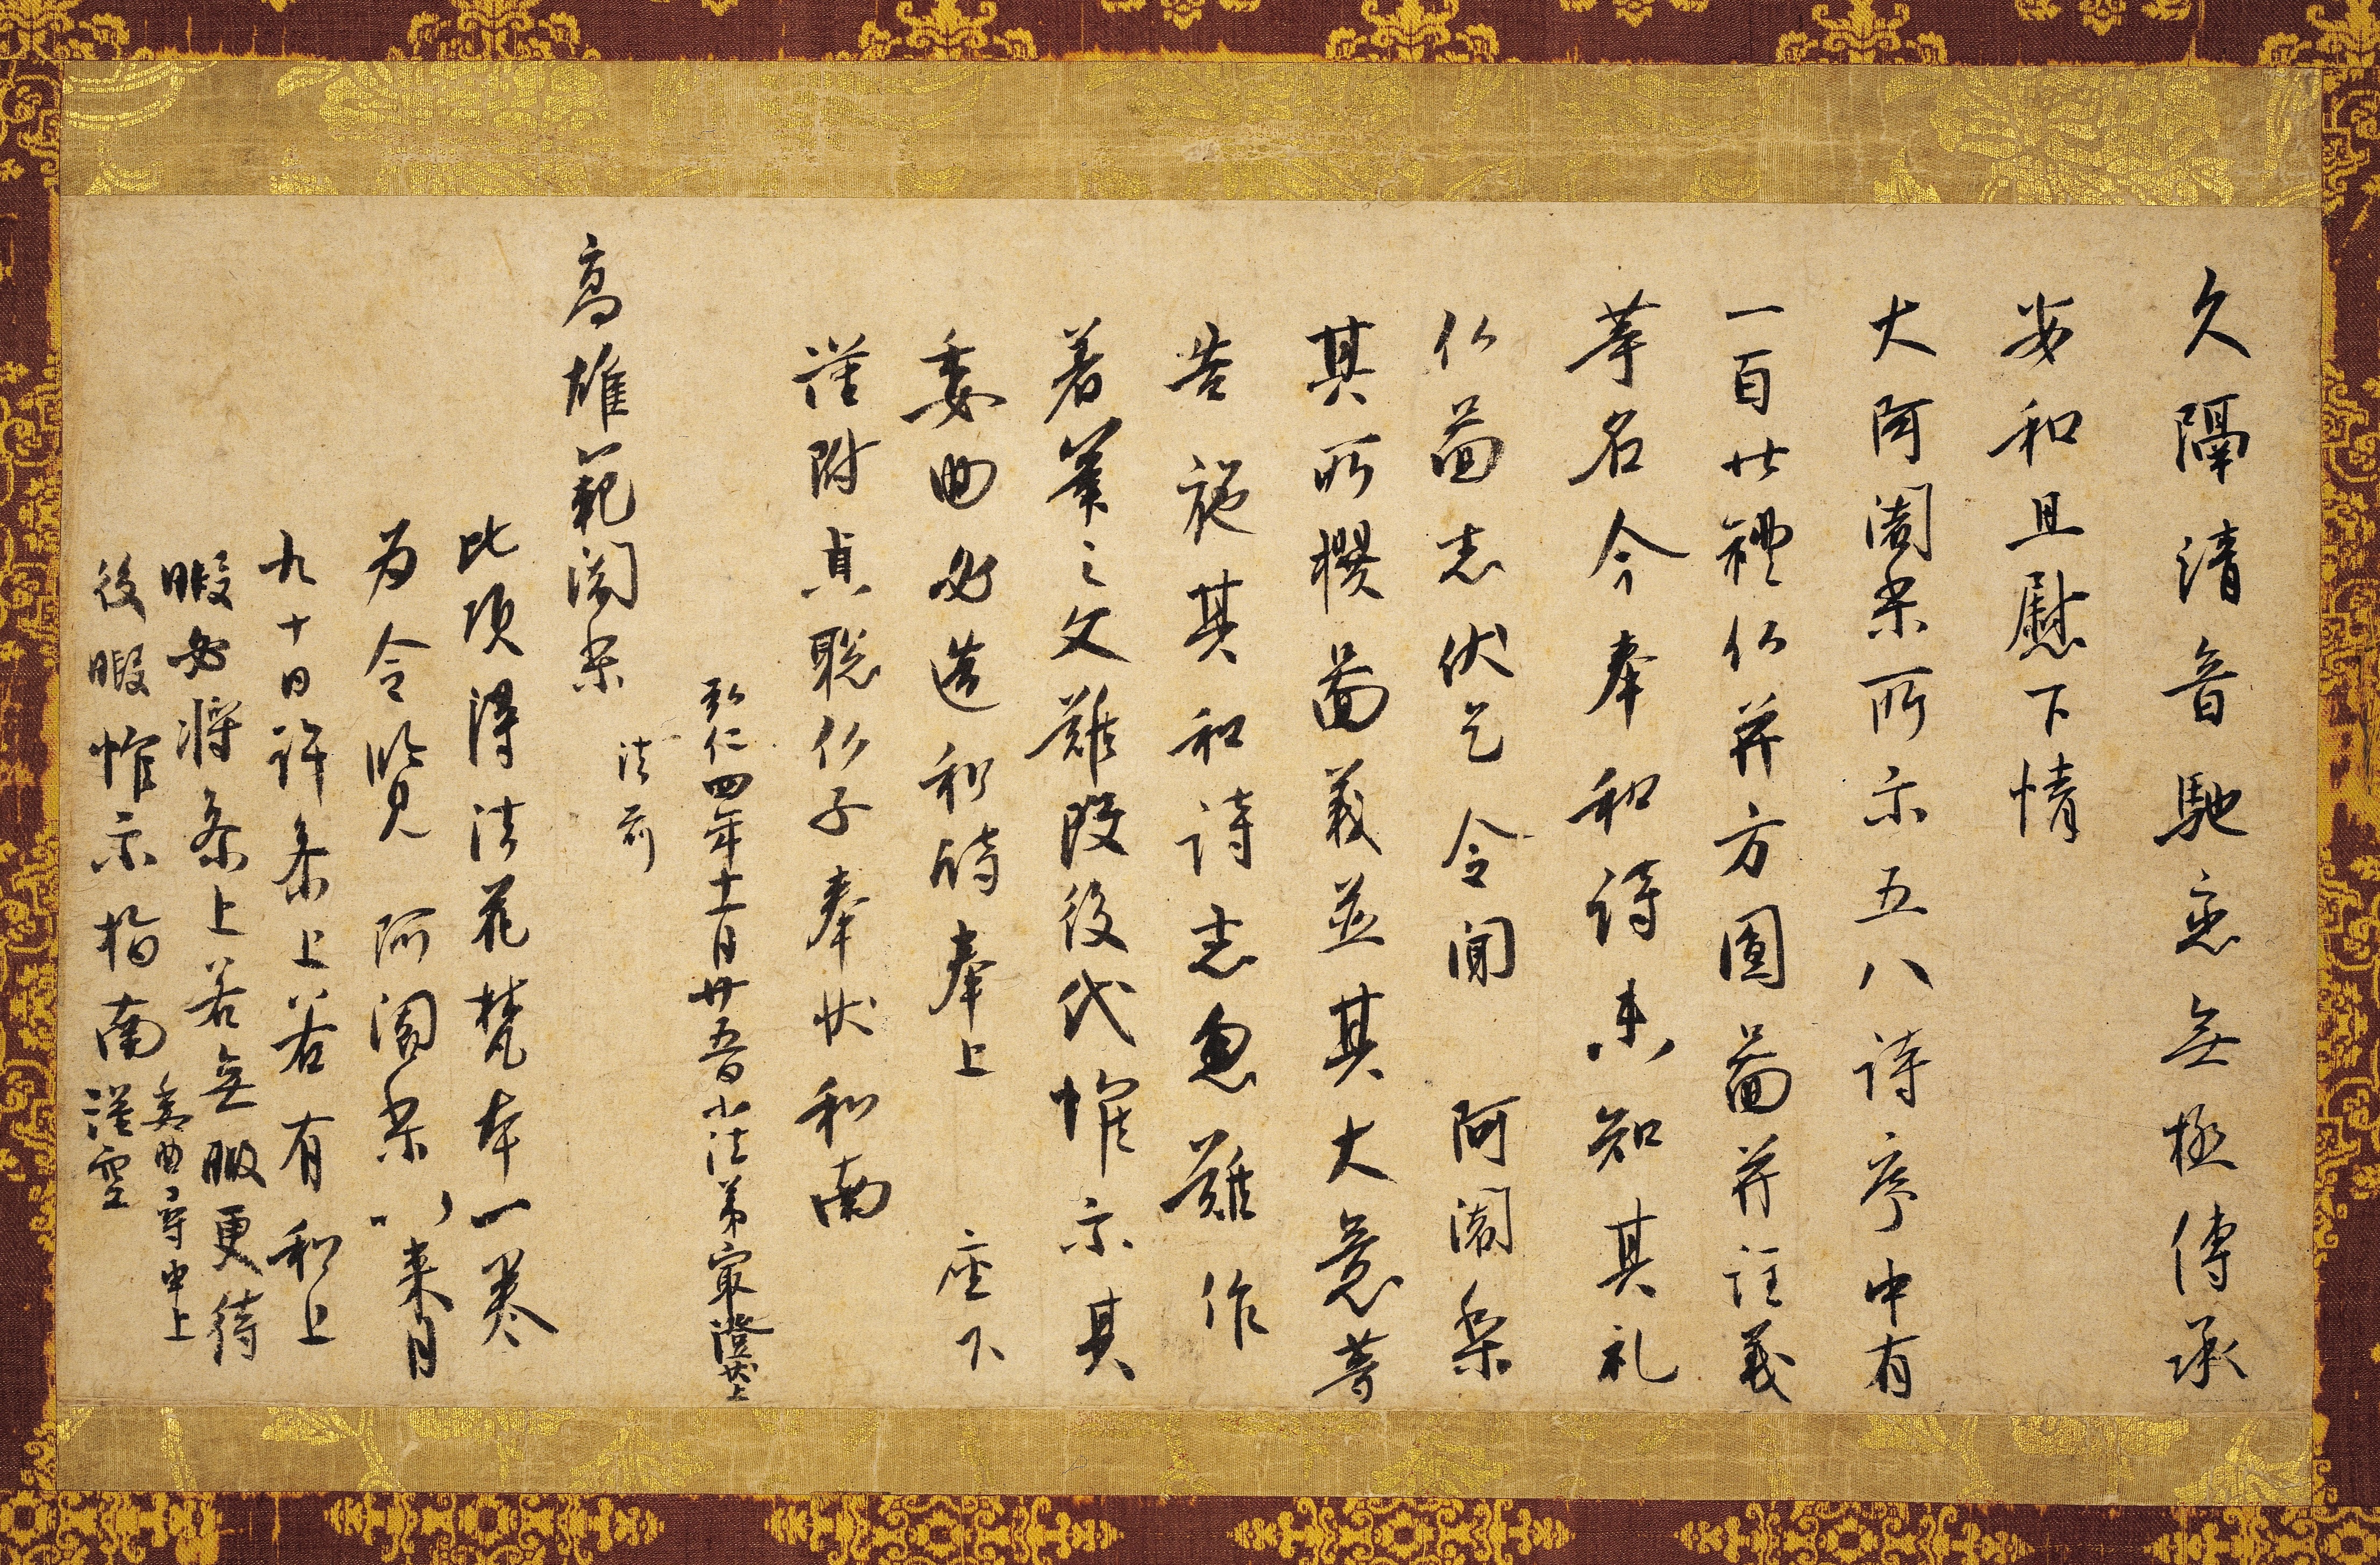 久隔清音馳恋無極傳承
安和且慰下情
大阿闍梨所示五八詩序中有
一百廿禮仏并方圓圖并註義
等名今奉和詩未知其礼
仏圖志伏乞令聞 阿闍梨
其所撰圖義並其大意等
告施其和詩者忽難作
著筆之文難改後代惟示其
委曲必造和詩奉上 座下
謹附貞聡仏子奉状和南
弘仁四年十一月廿五日小法弟最澄状上
高雄範闍梨
法前
比頃得法花梵本一巻
為令覧 阿闍梨以来月
九十日許参上若有和上
暇必将参上若無暇更待
後暇惟示指南 謹空
委曲尋申上